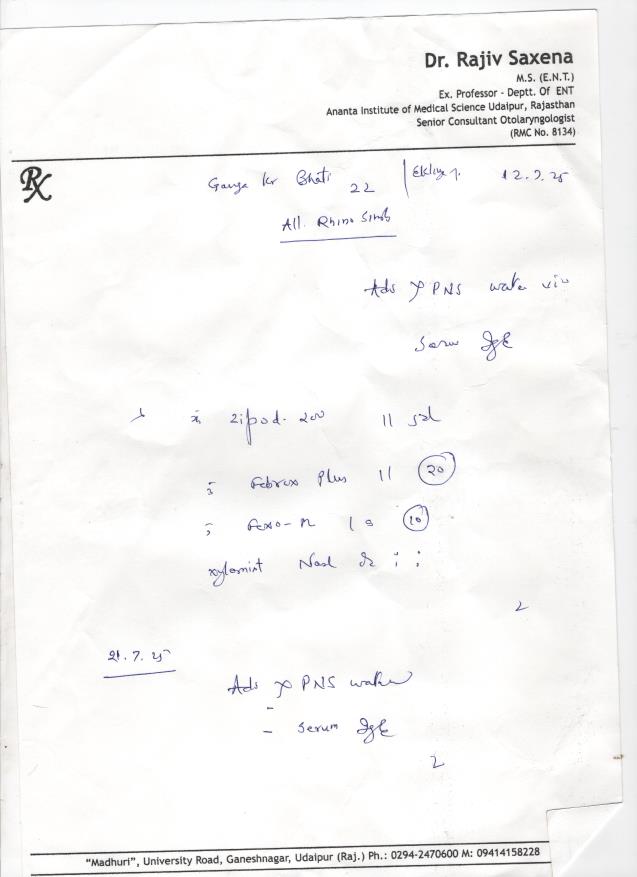 Dr. Rajiv Saxena
M.S. (E.N.T.)
Ex. Professor - Deptt. Of ENT
Ananta Institute of Medical Science Udaipur, Rajasthan
Senior Consultant Otolaryngologist
(RMC No. 8134)
Rx
Kr Bhati 22 12.7.25
All. Rhino Sinus
Adv X PNS water view
Serum IgE
Zipod-200 11 5d
Febrex Plus 11 20
Fexo-M 10
xylomist Nasal
21.7.25
Adv X PNS water
- Serum IgE
"Madhuri", University Road, Ganeshnagar, Udaipur (Raj.) Ph.: 0294-2470600 M: 09414158228